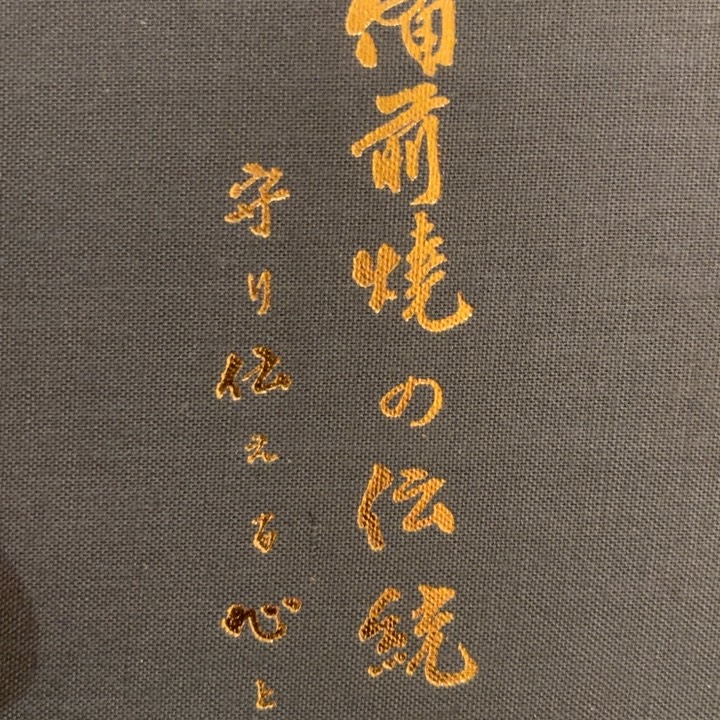 備前焼の伝統
守り伝える心と